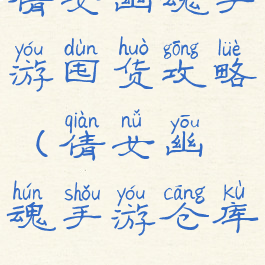 倩女幽魂手
yóu dùn huò gōng lüè
游囤货攻略
qiàn nǚ yōu
(倩女幽
hún shǒu yóu cāng kù
魂手游仓库